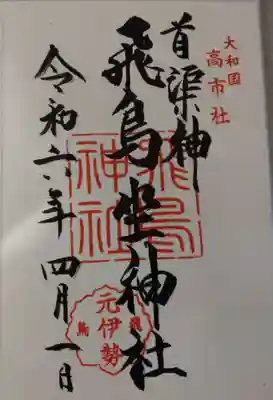 大和国
高市社
首渠神
飛鳥坐神社
飛鳥
神社
元伊勢
令和六年四月一日